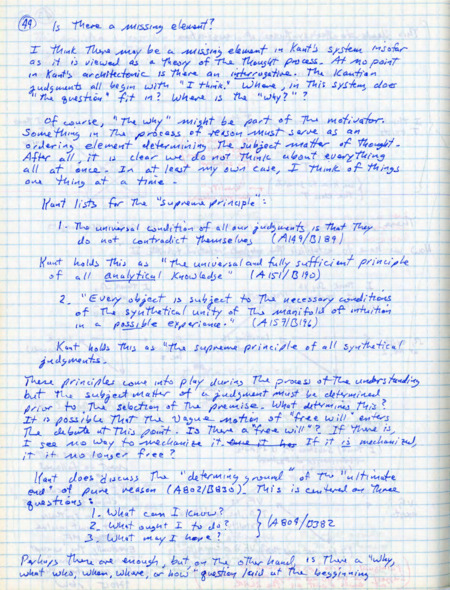 44 Is there a missing element?
I think there may be a missing element in Kant's system insofar
as it is viewed as a theory of the thought process. At no point
in Kant's architectonic is there an interrogative. The Kantian
judgments all begin with "I think." Where, in this system does
"the question" fit in? Where is the "why?"?
Of course, "the why" might be part of the motivator.
Something in the process of reason must serve as an
ordering element determining the subject matter of thought.
After all, it is clear we do not think about everything
all at once. In at least my own case, I think of things
one thing at a time.
Kant lists for the "supreme principle":
1. The universal condition of all our judgments is that they
do not contradict themselves (A149/B189)
Kant holds this as "the universal and fully sufficient principle
of all analytical knowledge" (A151/B190)
2. "Every object is subject to the necessary conditions
of the synthetical unity of the manifold of intuition
in a possible experience." (A157/B196)
Kant holds this as "the supreme principle of all synthetical
judgments.
These principles come into play during the process of the understanding
but the subject matter of a judgment must be determined
prior to the selection of the premise. What determines this?
It is possible that the vague notion of "free will" enters
the debate at this point. Is there a "free will"? If there is,
I see no way to mechanize it. If it is mechanized,
it it no longer free?
Kant does discuss the "determing ground" of the "ultimate
end" of pure reason (A802/B830). This is centered on three
questions:
1. What can I know?
2. What ought I to do? } (A804/B382
3. What may I hope?
Perhaps these are enough, but, on the other hand is there a "why,
what who, when, where, or how" question laid at the beggining